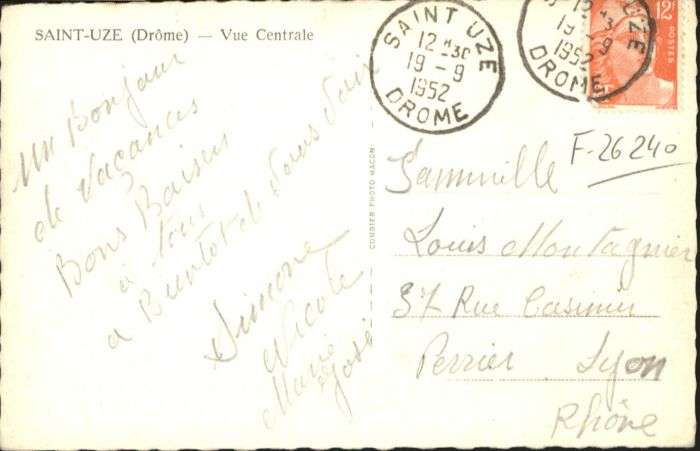 SAINT-UZE (Drôme) — Vue Centrale
Un Bonjour
de Vacances
Bons Baisers
à Tous
à Bientot de Vous Voir
Simone
Nicole
Marie
José
COMBIER PHOTO MACON
SAINT UZE
12 H30
19 - 9
1952
DROME
UZE
12
19 - 9
1952
DROME
12F
POSTES
F-26240
Famille
Louis Montagnier
37 Rue Casimir
Perrier Lyon
Rhône